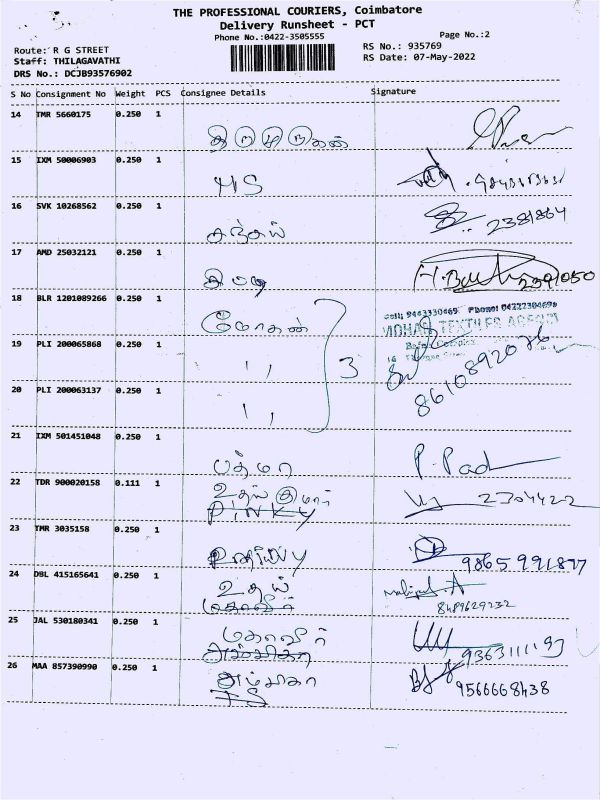 THE PROFESSIONAL COURIERS, Coimbatore
Delivery Runsheet - PCT
Phone No.:0422-3505555
Page No.:2
Route: R G STREET
RS No.: 935769
Staff: THILAGAVATHI
RS Date: 07-May-2022
DRS No.: DCJB93576902
S No Consignment No Weight PCS Consignee Details Signature
14 TMR 5660175 0.250 1
15 IXM 50006903 0.250 1
HS
16 SVK 10268562 0.250 1
2381864
சஞ்சய்
17 AMD 25032121 0.250 1
2391050
18 BLR 1201089266 0.250 1
மோகன்
MOHAN TEXTILES AGENCY
19 PLI 200065868 0.250 1
" 3
8610892076
20 PLI 200063137 0.250 1
"
21 IXM 501451048 0.250 1
பத்மா P. Pad
22 TDR 900020158 0.111 1
உதய் குமார் 2304422
PINKY
23 TMR 3035158 0.250 1
9865991877
24 DBL 415165641 0.250 1
உதய்
மகாவீர்
8489629232
25 JAL 530180341 0.250 1
மகாவீர்
9363111193
அம்பிகா
26 MAA 857390990 0.250 1
அம்பிகா
9566668438